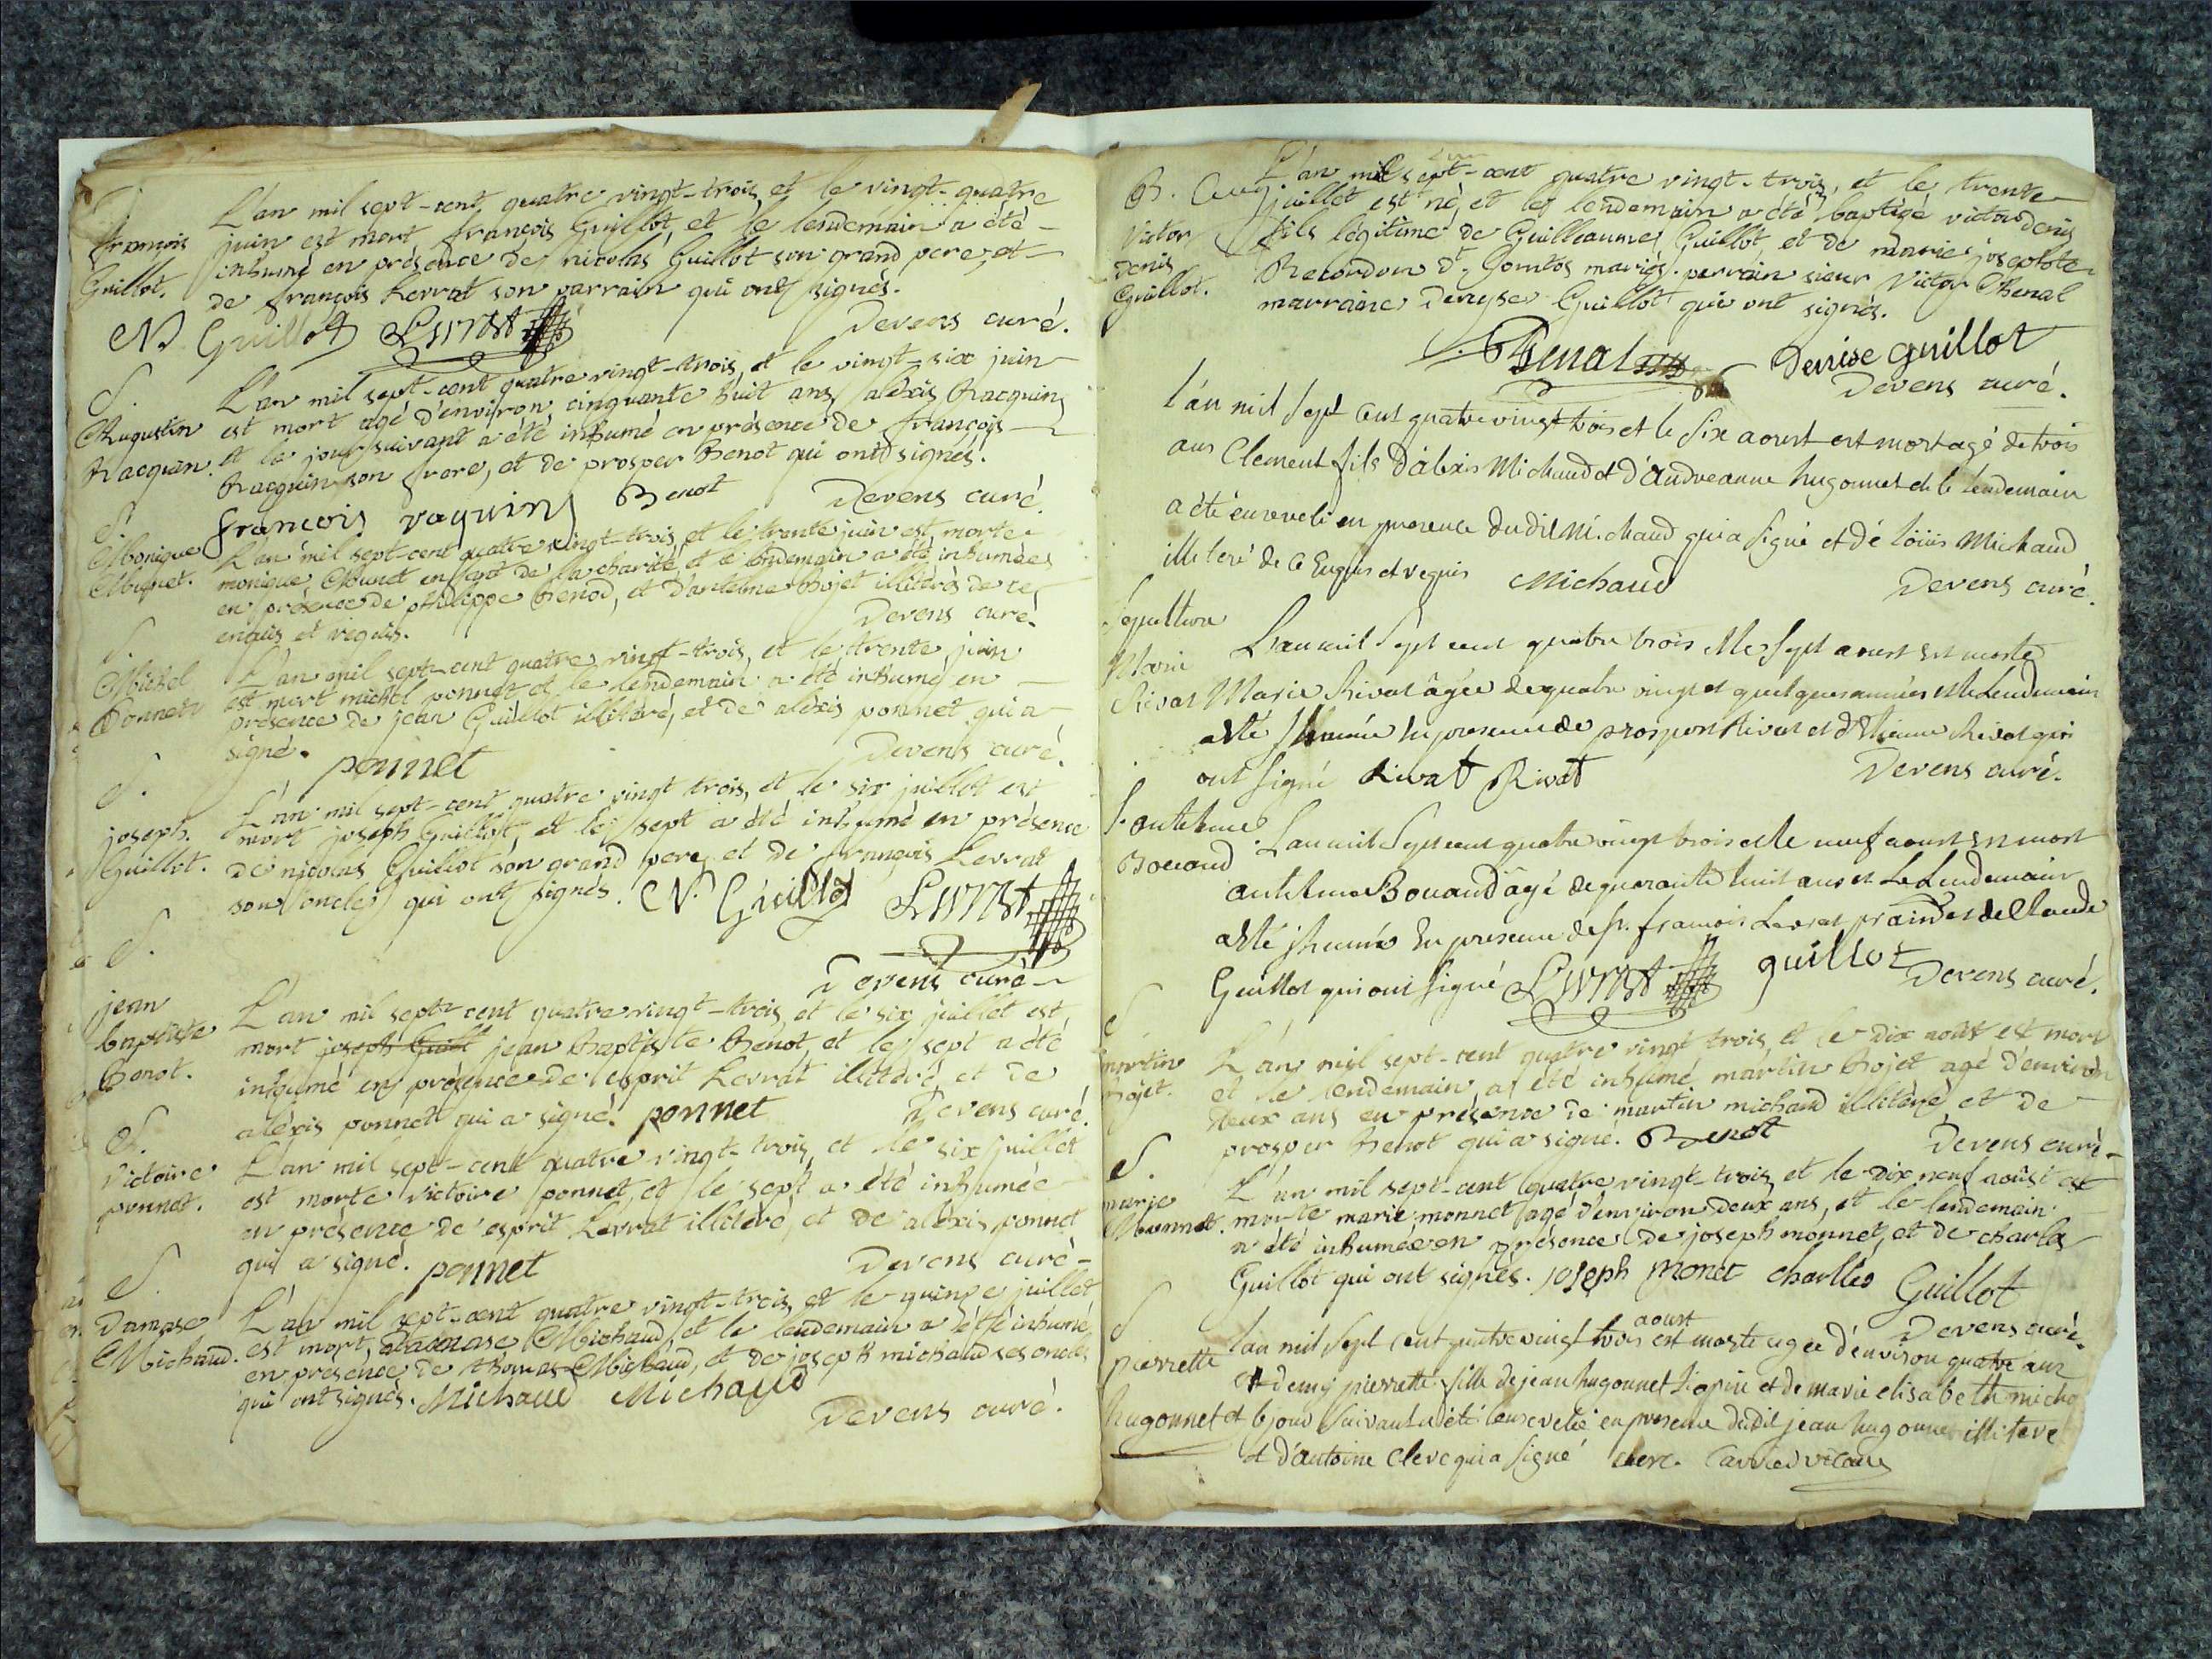 S.
L'an mil sept-cent quatre vingt-trois, et le vingt-quatre
françois juin est mort françois Guillot, et le lendemain a été
Guillot. inhumé en présence de nicolas Guillot son grand pere, et
de françois Levrat son parrain qui ont signés.
N. Guillot Levrat Devens curé.
S. L'an mil sept-cent quatre vingt-trois, et le vingt-six juin
Augustin est mort agé d'environ cinquante huit ans alexis Racquin,
Racquin. et le jour suivant a été inhumé en présence de françois
Racquin son frere, et de prosper Benot qui ont signés.
francois raquin Benot Devens curé.
S.
Monique L'an mil sept-cent quatre vingt-trois, et le trente juin est morte
Mugnet. monique enfant de la charité, et le lendemain a été inhumée
en présence de philippe Benod, et d'antelme Bojet illitérés de ce
enquis et requis. Devens curé.
S.
Michel L'an mil sept-cent quatre vingt-trois, et le trente juin
Ponnet est mort michel ponnet et le lendemain a été inhumé en
présence de jean Guillot illitéré, et de alexis ponnet qui a
signé. ponnet Devens curé.
S. L'an mil sept-cent quatre vingt trois, et le six juillet est
joseph. mort joseph Guillot, et le sept a été inhumé en présence
Guillot. de nicolas Guillot son grand pere, et de françois Levrat
son oncle qui ont signés. N. Guillot Levrat
S.
Devens curé
jean L'an mil sept-cent quatre vingt-trois, et le six juillet est
baptiste mort joseph Guill jean Baptiste Benot, et le sept a été
Benot. inhumé en présence de esprit Levrat illitéré, et de
alexis ponnet qui a signé. ponnet Devens curé.
S.
victoire L'an mil sept-cent quatre vingt-trois, et le six juillet
ponnet. est morte victoire ponnet, et le sept a été inhumée
en présence de esprit Levrat illitéré, et de alexis ponnet
qui a signé. ponnet Devens curé
S.
Damase L'an mil sept-cent quatre vingt-trois, et le quinze juillet
Michaud. est mort, Damase Michaud, et le lendemain a été inhumé
en présence de thomas Michaud, et de joseph michaud ses oncles
qui ont signés. Michaud Michaud
Devens curé.
B. L'an mil sept-cent quatre vingt-trois, et le trente
victor juillet est né, et le lendemain a été baptisé victor denis
denis fils légitime de Guilleaume Guillot, et de marie josephte
Guillot. Recordon de mariés. parrain sieur Victor Chenal
marraine Denyse Guillot qui ont signés.
Chenal Denise guillot
Devens curé.
l'an mil sept cent quatre vingt trois et le six aoust est mort agé de trois
ans Clement fils d'alexis Michaud et d'andreanne hugonnet et le lendemain
a été enseveli en presence dudit Michaud qui a signé et de louis Michaud
illiteré de ce enquis et requis Michaud Devens curé.
Sepulture
Marie L'an mil sept cent quatre trois et le sept aoust est morte
Rivat Marie Rivat âgée de quatre vingt et quelques années et le Lendemain
a été Inhumée En presence de prosper Rivat et d'Etienne Rivat qui
ont signé Rivat Rivat Devens curé.
S. antelme L'an mil sept cent quatre vingt trois et le neuf aoust est mort
Bouaud antelme Bouaud âgé de quarante huit ans et Le Lendemain
a été jhumé En presence de sr. francois Levrat et de Claude
Guillot qui ont signé Levrat guillot Devens curé.
S
martin L'an mil sept-cent quatre vingt trois, et le dix août est mort
bojet. et le lendemain a été inhumé martin bojet agé d'environ
deux ans en présence de martin michaud illitéré, et de
prosper Benot qui a signé. Benot Devens curé
S.
marie L'an mil sept-cent quatre vingt-trois, et le dix neuf août est
Monnet. morte marie monnet agé d'environ deux ans, et le lendemain
a été inhumée en présence de joseph monnet, et de charles
Guillot qui ont signés. joseph monet charlles Guillot
Devens curé.
S aoust
pierrette l'an mil sept cent quatre vingt trois est morte agée d'environ quatre ans
et demy pierrette fille de jean hugonnet et de marie elisabeth
hugonnet et le jour suivant a été ensevelie en presence dudit jean hugonnet illiteré
et d'antoine clerc qui a signé clerc. vicaire